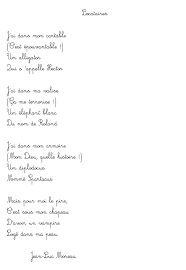 Locataires
J'ai dans mon cartable
(C'est épouvantable !)
Un alligator
Qui s'appelle Hector.
J'ai dans ma valise
(Ça me terrorise !)
Un éléphant blanc
Du nom de Roland.
J'ai dans mon armoire
(Mon Dieu, quelle histoire !)
Un diplodocus
Nommé Spartacus.
Mais pour moi le pire,
C'est sous mon chapeau
D'avoir un vampire
Logé dans ma peau.
Jean-Luc Moreau